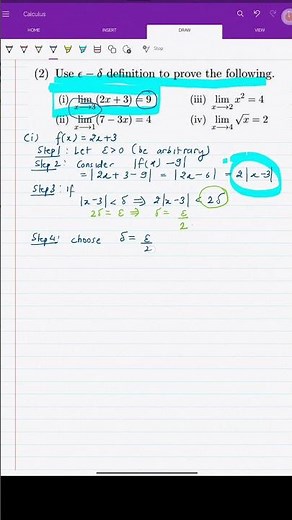 Calculus
HOME
INSERT
DRAW
VIEW
(2) Use ϵ − δ definition to prove the following.
(i) lim x→3 (2x + 3) = 9 (iii) lim x→2 x² = 4
(ii) lim x→1 (7 − 3x) = 4 (iv) lim x→4 √x = 2
(i) f(x) = 2x+3
Step 1: Let ε>0 (be arbitrary)
Step 2: Consider |f(x) -9|
= |2x+3-9| = |2x-6| = 2|x-3|
Step 3: if
|x-3| < δ ⇒ 2|x-3| < 2δ
2δ = ε ⇒ δ = ε/2
Step 4: choose δ = ε/2